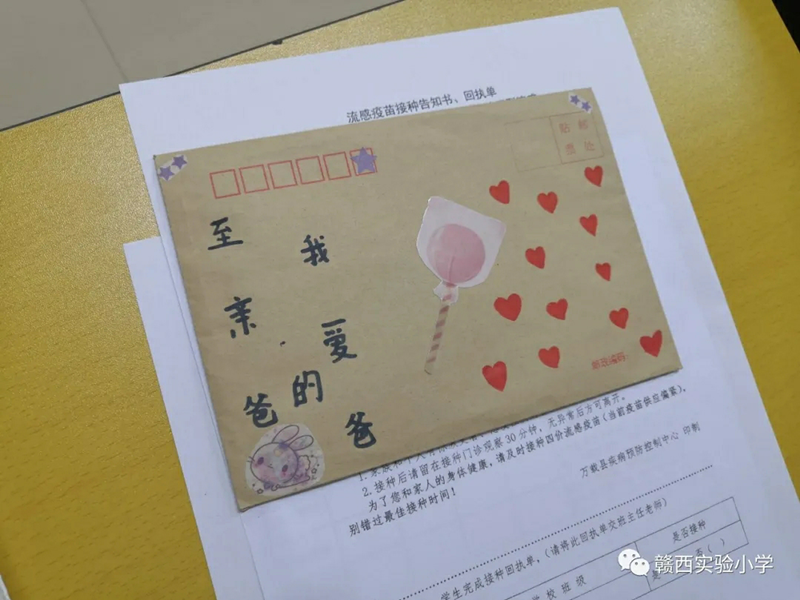 流感疫苗接种告知书、回执单
贴 邮
票 处
至 我
亲 爱
的
爸 爸
邮政编码:
无异常后方可离开。
2.接种后请留在接种门诊观察30分钟,
为了您和家人的身体健康,请及时接种四价流感疫苗(当前疫苗供应偏紧),
别错过最佳接种时间!
万载县疾病预防控制中心 印制
学生完成接种回执单,(请将此回执单交班主任老师)
学 校 班 级
是否接种
是 否( )
赣西实验小学